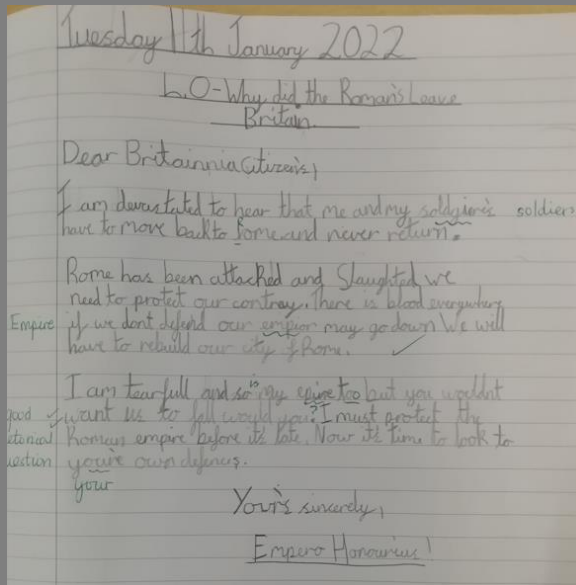 Tuesday 11th January 2022
L.O-Why did the Roman's Leave
Britain.
Dear Britainnia Citizen's,
I am devastated to hear that, me and my soldgier's soldiers
have to move back to Rome and never return.
Rome has been attacked and Slaughted, we
need to protect our contray. There is blood everywhere
Empire if we dont defend our empior may go down We will
have to rebuild our city of Rome.
I am tearfull and so is my epire too but you wouldnt
good want us to fall would you? I must protect the
Roman empire before it's late. Now it's time to look to
you're own defences.
your
Your's sincerely,
Empero Honourius!